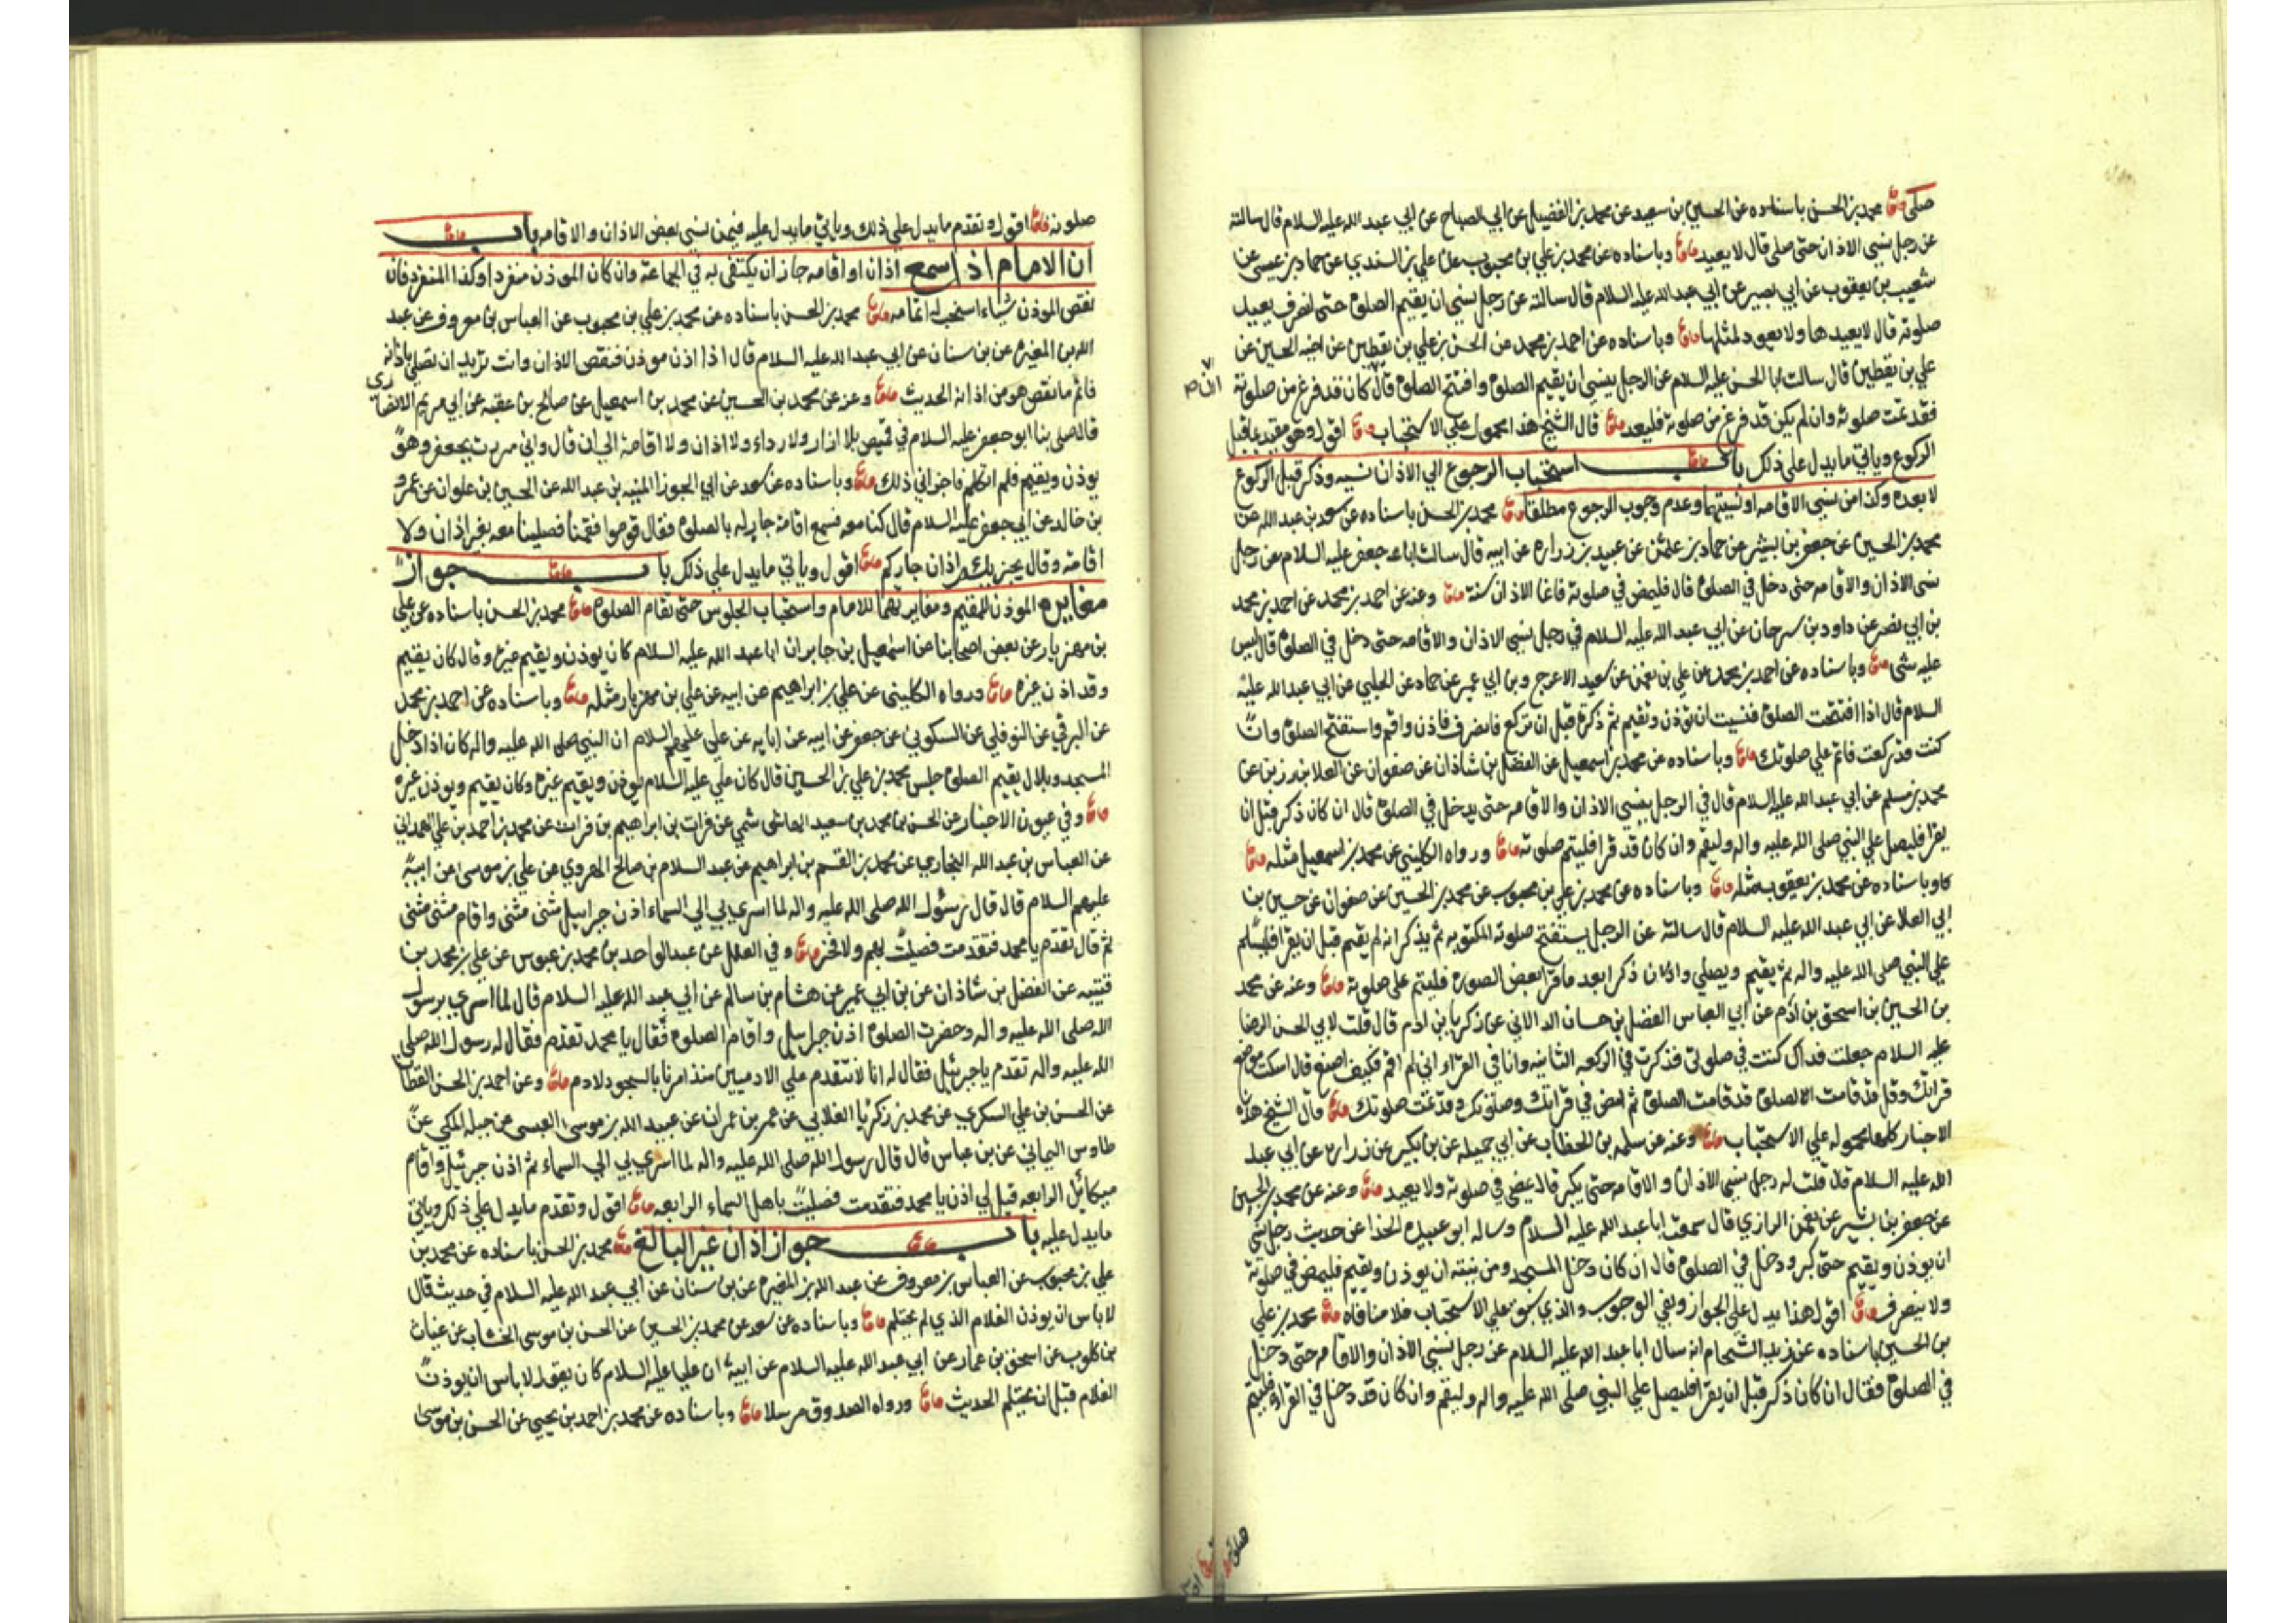 صلى محمد بن الحسن باسناده عن الحسين بن سعيد عن محمد بن الفضيل عن ابي الصباح عن ابي عبد الله عليه السلام قال سالته
عن رجل نسي الاذان حتى صلى قال لا يعيد وباسناده عن محمد بن علي بن محبوب عن علي بن السندي عن حماد بن عيسى عن
شعيب بن يعقوب عن ابي بصير عن ابي عبد الله عليه السلام قال سالته عن رجل نسي ان يقيم الصلوة حتى انصرف يعيد
صلوته قال لا يعيدها ولا يعود لمثلها وباسناده عن احمد بن محمد عن الحسن بن علي بن يقطين عن اخيه الحسين عن
علي بن يقطين قال سالت ابا الحسن عليه السلام عن الرجل ينسى ان يقيم الصلوة وافتتح الصلوة قال كان قد فرغ من صلوته
فقد تمت صلوته وان لم يكن قد فرغ من صلوته فليعد قال الشيخ هذا محمول على الاستحباب اقول وهو مقيد بما قبل
الركوع وياتي ما يدل على ذلك باب استحباب الرجوع الي الاذان نسيه وذكر قبل الركوع
لا بعده وكذا من نسي الاقامه او نسيتهما وعدم وجوب الرجوع مطلقا محمد بن الحسن باسناده عن سعد بن عبد الله عن
محمد بن الحسين عن جعفر بن بشير عن حماد بن عثمن عن عبيد بن زراره عن ابيه قال سالت ابا جعفر عليه السلام عن رجل
نسي الاذان والاقامه حتى دخل في الصلوة قال فليمض في صلوته فانما الاذان سنة وعنه عن احمد بن محمد عن احمد بن محمد
بن ابي نصر عن داود بن سرحان عن ابي عبد الله عليه السلام في رجل نسي الاذان والاقامه حتى دخل في الصلوة قال ليس
عليه شي وباسناده عن احمد بن محمد عن علي بن نعمن عن سعيد الاعرج وبن ابي عمير عن حماد عن الحلبي عن ابي عبد الله عليه
السلام قال اذا افتتحت الصلوة فنسيت ان تؤذن وتقيم ثم ذكرت قبل ان تركع فانصرف فاذن واقم واستفتح الصلوة وان
كنت قد ركعت فاتم علي صلوتك وباسناده عن محمد بن اسمعيل عن الفضل بن شاذان عن صفوان عن العلا بن رزين عن
محمد بن مسلم عن ابي عبد الله عليه السلام قال في الرجل ينسي الاذان والاقامه حتى يدخل في الصلوة قال ان كان ذكر قبل ان
يقرا فليصل علي النبي صلى الله عليه واله وليقم وان كان قد قرا فليتم صلوته ورواه الكليني عن محمد بن اسمعيل مثله
وباسناده عن محمد بن يعقوب مثله وباسناده عن محمد بن علي بن محبوب عن محمد بن الحسين عن صفوان عن حسين بن
ابي العلا عن ابي عبد الله عليه السلام قال سالته عن الرجل يستفتح صلوته المكتوبه ثم يذكر انه لم يقيم قبل ان يقرا فليسلم
علي النبي صلى الله عليه واله ثم يقيم ويصلي وان كان ذكر بعد ما قرا بعض السورة فليتم على صلوته وعنه عن محمد
بن الحسين بن اسحق بن ادم عن ابي العباس الفضل بن حسان الدالاني عن زكريا بن ادم قال قلت لابي الحسن الرضا
عليه السلام جعلت فداك كنت في صلوتي فذكرت في الركعه الثانيه وانا في القراه اني لم اقم فكيف اصنع قال اسكت موضع
قراتك وقل قد قامت الصلوة قد قامت الصلوة ثم امض في قراتك وصلوتك وقد تمت صلوتك قال الشيخ هذه
الاخبار كلها محموله علي الاستحباب وعنه عن سلمه بن الخطاب عن ابي جميله عن بن بكير عن زراره عن ابي عبد
الله عليه السلام قال قلت له رجل ينسي الاذان والاقامه حتى يكبر قال يمضي في صلوته ولا يعيد وعنه عن محمد بن الحسين
عن جعفر بن بشير عن نعمن الرازي قال سمعت ابا عبد الله عليه السلام وساله ابو عبيده الحذا عن حديث رجل نسي
ان يوذن ويقيم حتى كبر ودخل في الصلوة قال ان كان دخل المسجد ومن نيته ان يوذن ويقيم فليمض في صلوته
ولا ينصرف اقول هذا يدل علي الجواز ونفي الوجوب والذي سبق علي الاستحباب فلا منافاه محمد بن علي
بن الحسين باسناده عن زيد الشحام انه سال ابا عبد الله عليه السلام عن رجل نسي الاذان والاقامه حتى دخل
في الصلوة فقال ان كان ذكر قبل ان يقرا فليصل علي النبي صلى الله عليه واله وليقم وان كان قد دخل في القراة فليتم
صلوته اقول وتقدم ما يدل علي ذلك وياتي ما يدل عليه فيمن نسي بعض الاذان والاقامه باب
ان الامام اذا سمع اذان او اقامه جاز ان يكتفي به في الجماعة وان كان الموذن منفردا وكذا المنفرد فان
نقص الموذن شيئا استحب له اتمامه محمد بن الحسن باسناده عن محمد بن علي بن محبوب عن العباس بن معروف عن عبد
الله بن المغيره عن بن سنان عن ابي عبد الله عليه السلام قال اذا اذن موذن فنقص الاذان وانت تريد ان تصلي باذانه
فاتم ما نقص هو من اذانه الحديث وعنه عن محمد بن الحسين عن محمد بن اسمعيل عن صالح بن عقبه عن ابي مريم الانصاري
قال صلى بنا ابو جعفر عليه السلام في قميص بلا ازار ولا رداء ولا اذان ولا اقامة الي ان قال واني مررت بجعفر وهو
يوذن ويقيم فلم اتكلم فاجزاني ذلك وباسناده عن سعد عن ابي الجوزا المنبه بن عبد الله عن الحسين بن علوان عن عمرو
بن خالد عن ابي جعفر عليه السلام قال كنا معه فسمع اقامة جار له بالصلوة فقال قوموا فقمنا فصلينا معه بغير اذان ولا
اقامة وقال يجزيكم اذان جاركم اقول وياتي ما يدل علي ذلك باب جواز
مغايره الموذن للمقيم ومغايرتهما للامام واستحباب الجلوس حتى تقام الصلوة محمد بن الحسن باسناده عن علي
بن مهزيار عن بعض اصحابنا عن اسمعيل بن جابر ان ابا عبد الله عليه السلام كان يوذن ويقيم غيره وقال كان يقيم
وقد اذن غيره ورواه الكليني عن علي بن ابراهيم عن ابيه عن علي بن مهزيار مثله وباسناده عن احمد بن محمد
عن البرقي عن النوفلي عن السكوني عن جعفر عن ابيه عن ابايه عن علي عليهم السلام ان النبي صلى الله عليه واله كان اذا دخل
المسجد وبلال يقيم الصلوة جلس محمد بن علي بن الحسين قال كان علي عليه السلام يوذن ويقيم غيره وكان يقيم ويوذن غيره
وفي عيون الاخبار عن الحسن بن محمد بن سعيد الهاشمي عن فرات بن ابراهيم بن فرات عن محمد بن احمد بن علي الهمداني
عن العباس بن عبد الله البخاري عن محمد بن القسم بن ابراهيم عن عبد السلام بن صالح الهروي عن علي بن موسى عن ابيه
عليهم السلام قال قال رسول الله صلى الله عليه واله لما اسري بي الى السماء اذن جبرائيل مثنى مثنى واقام مثنى مثنى
ثم قال تقدم يا محمد فتقدمت فصليت بهم ولا فخر وفي العلل عن عبد الواحد بن محمد بن عبدوس عن علي بن محمد بن
قتيبه عن الفضل بن شاذان عن بن ابي عمير عن هشام بن سالم عن ابي عبد الله عليه السلام قال لما اسري برسول
الله صلى الله عليه واله وحضرت الصلوة اذن جبرئيل واقام الصلوة فقال يا محمد تقدم فقال له رسول الله صلى
الله عليه واله تقدم يا جبرئيل فقال له انا لا نتقدم علي الادميين منذ امرنا بالسجود لادم وعن احمد بن الحسن القطان
عن الحسن بن علي السكري عن محمد بن زكريا الغلابي عن عمر بن عمران عن عبيد الله بن موسى العبسي عن جبله المكي عن
طاوس اليماني عن بن عباس قال قال رسول الله صلى الله عليه واله لما اسري بي الى السماء ثم اذن جبرئيل واقام
ميكائل الرابعه قيل لي اذن يا محمد فتقدمت فصليت باهل السماء الرابعه اقول وتقدم ما يدل علي ذلك وياتي
ما يدل عليه باب جواز اذان غير البالغ محمد بن الحسن باسناده عن محمد بن
علي بن محبوب عن العباس بن معروف عن عبد الله بن المغيره عن بن سنان عن ابي عبد الله عليه السلام في حديث قال
لا باس ان يوذن الغلام الذي لم يحتلم وباسناده عن سعد عن محمد بن الحسين عن الحسن بن موسى الخشاب عن غياث
بن كلوب عن اسحق بن عمار عن ابي عبد الله عليه السلام عن ابيه ان عليا عليه السلام كان يقول لا باس ان يوذن
الغلام قبل ان يحتلم الحديث ورواه الصدوق مرسلا وباسناده عن محمد بن احمد بن يحيي عن الحسن بن موسى